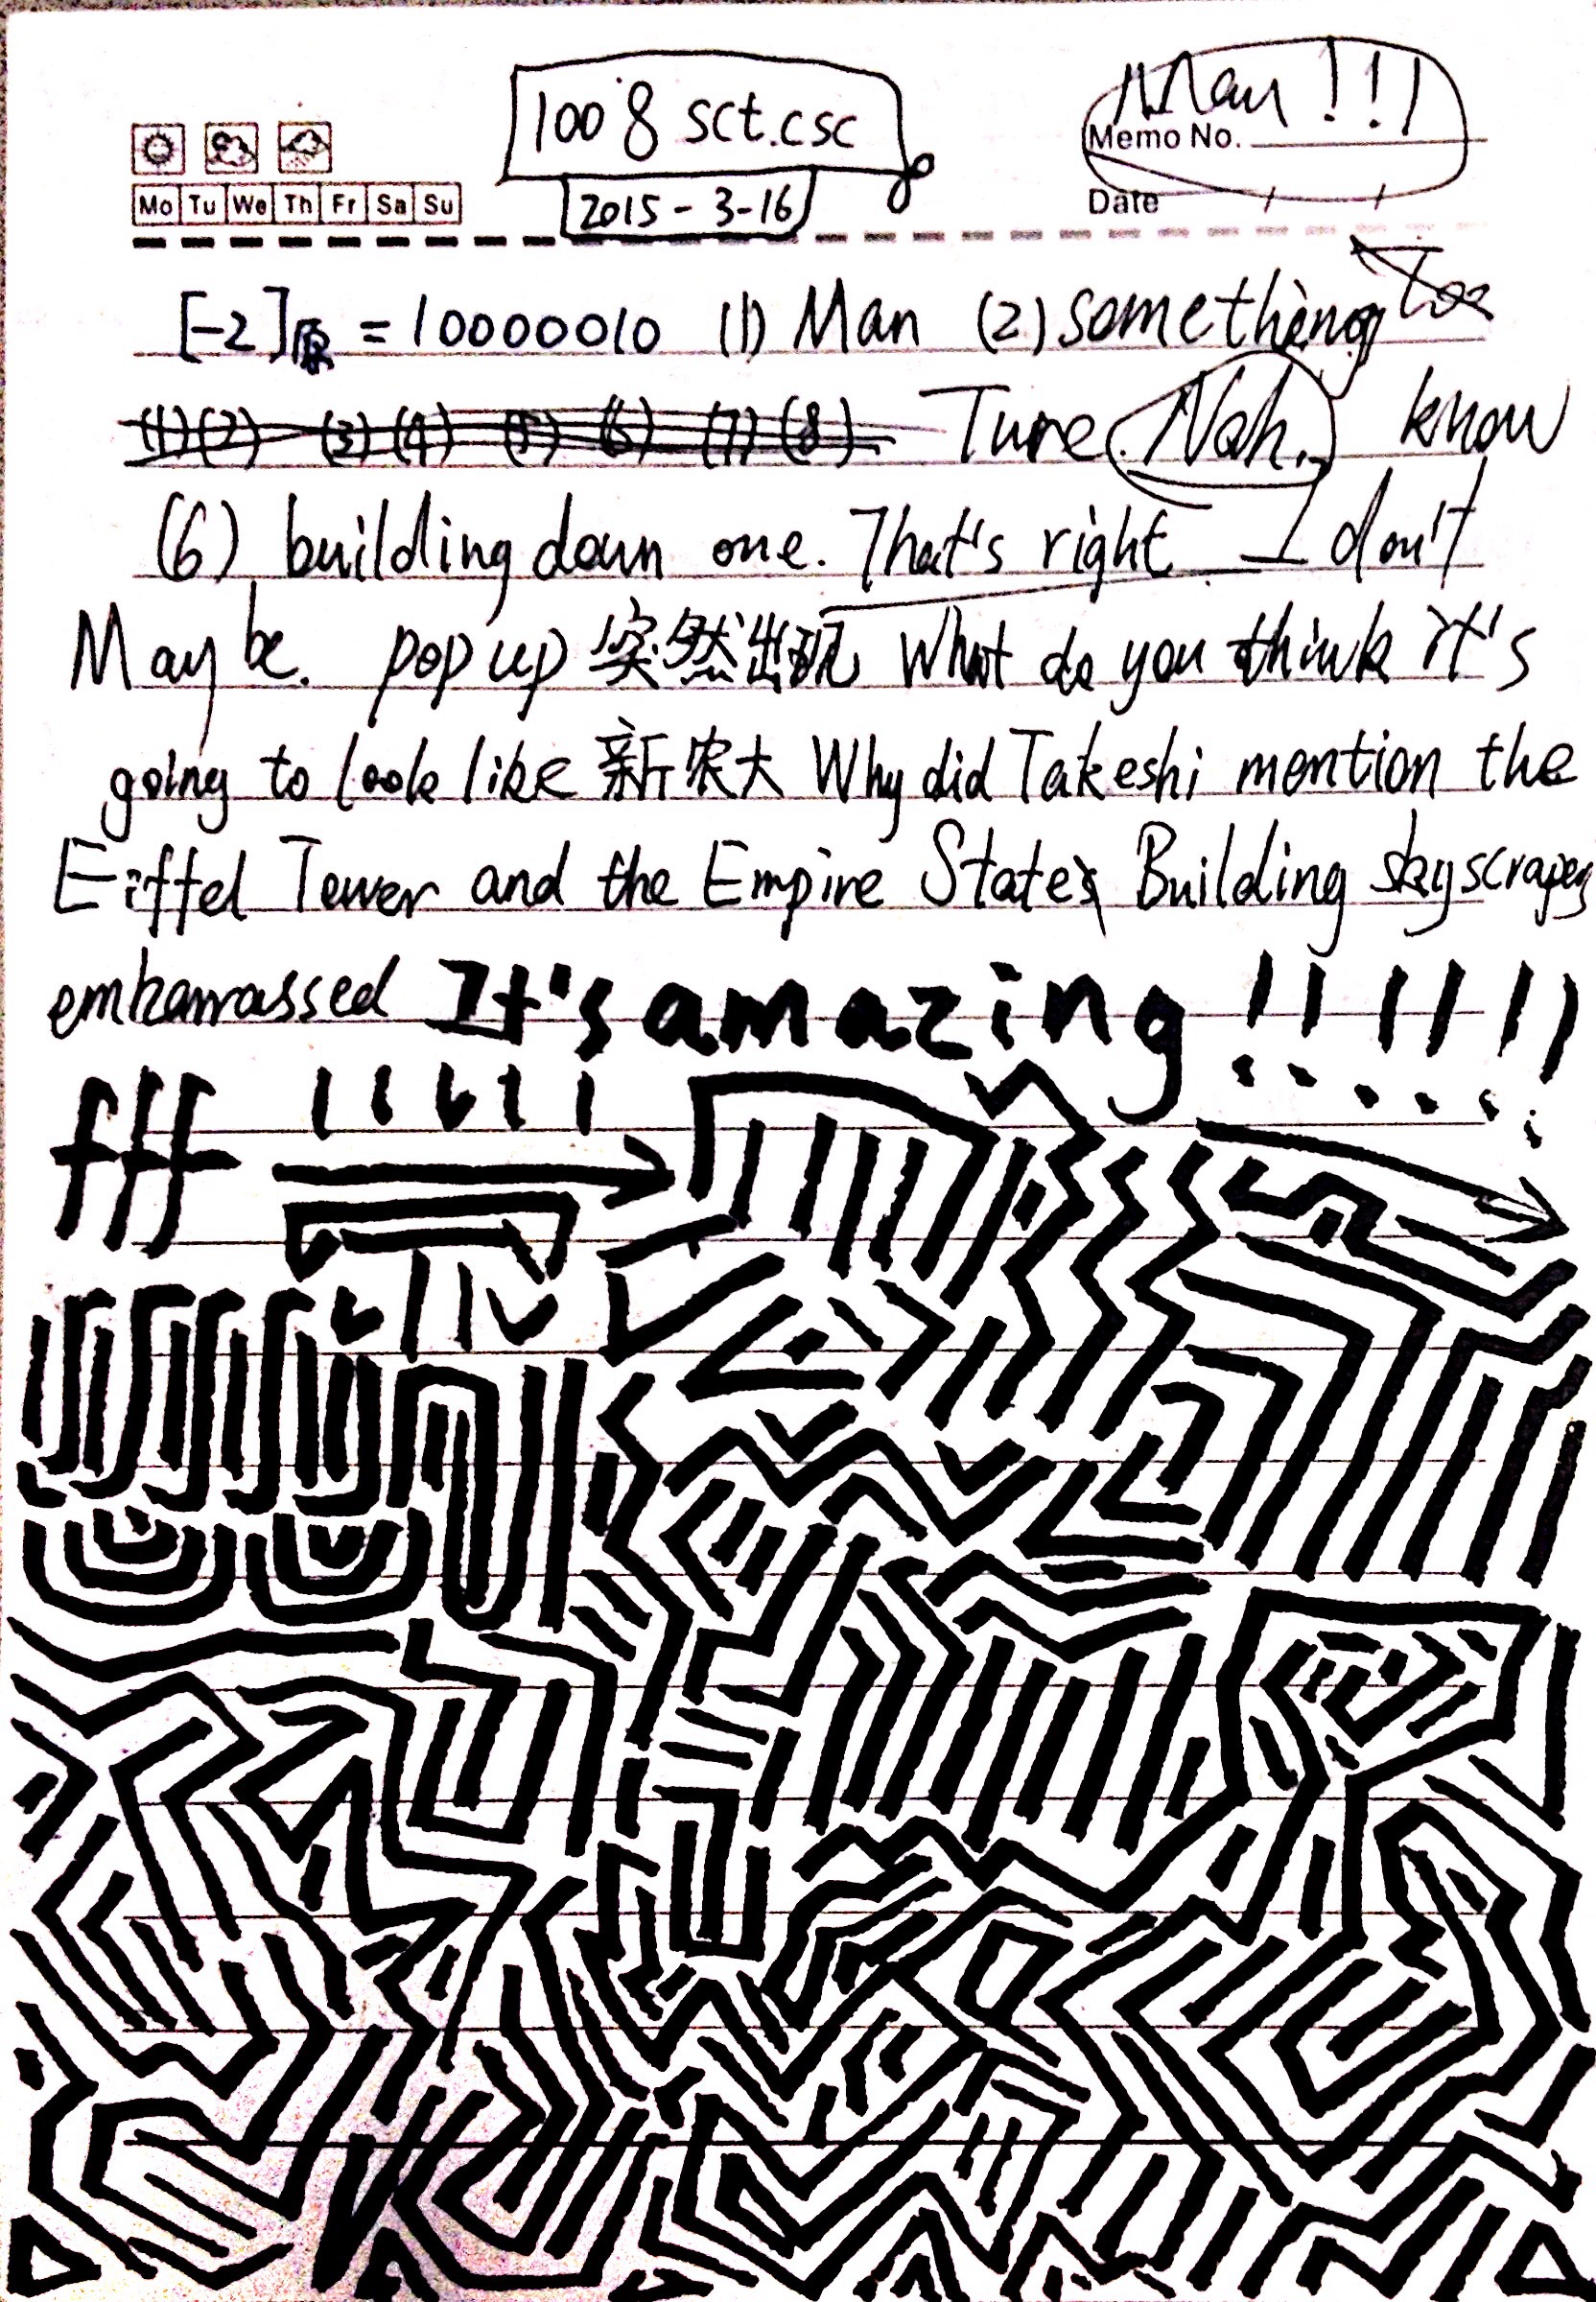 100 8 sct.csc
Man !!!
Memo No.
Mo Tu We Th Fr Sa Su
2015-3-16
Date / /
[-2]原 = 10000010 (1) Man (2) something
(1)(2) (3)(4) (5) (6) (7)(8) Ture Nah. know
(6) building down one. That's right I don't
Maybe. pop up 突然出现 What do you think it's
going to look like 新农大 Why did Takeshi mention the
Eiffel Tower and the Empire State Building skyscraper
embarrassed It's amazing !!!!!!
fff